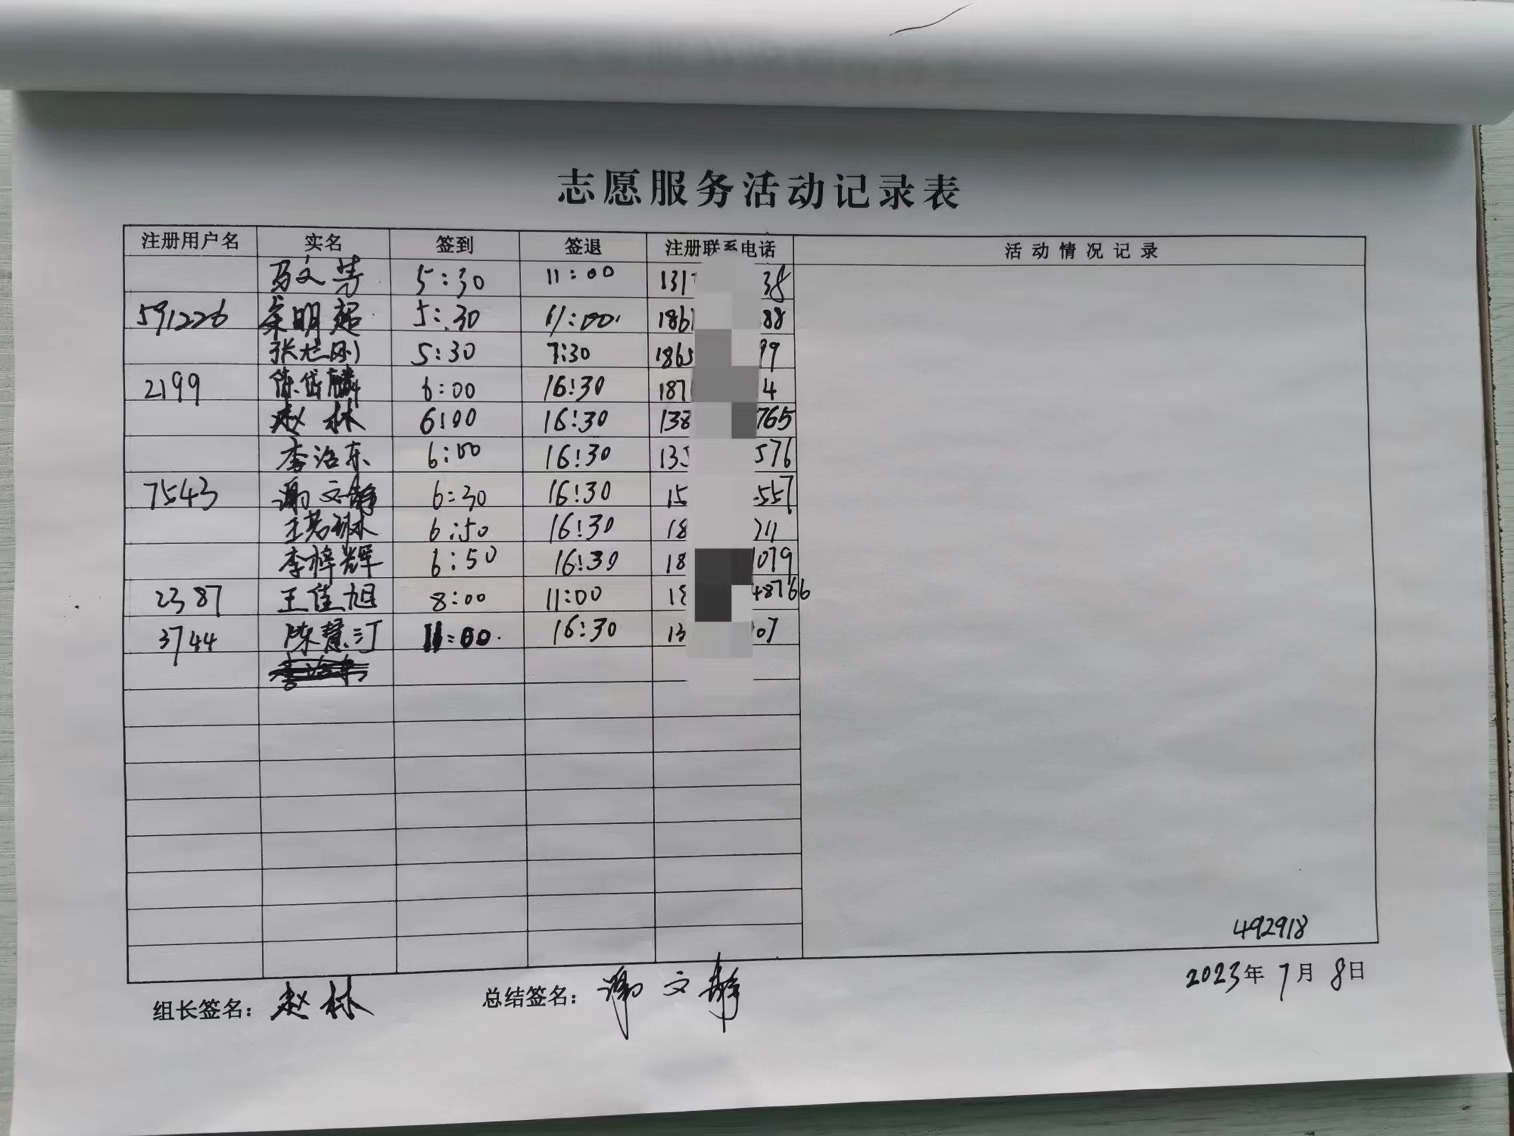 志愿服务活动记录表
注册用户名 实名 签到 签退 注册联系电话 活动情况记录
马文芳 5:30 11:00 131 38
591226 明超 5:30 11:00 186 88
张 刚 5:30 7:30 1865 99
2199 陈岱麟 6:00 16:30 187 4
赵林 6:00 16:30 138 765
李洺东 6:00 16:30 13 576
7543 谢文静 6:30 16:30 15 557
王茗琳 6:50 16:30 18 211
李梓辉 6:50 16:30 18 079
2387 王佳旭 8:00 11:00 18 48766
3744 陈慧汀 11:00 16:30 13 07
492918
2023年7月8日
组长签名：赵林 总结签名：谢文静